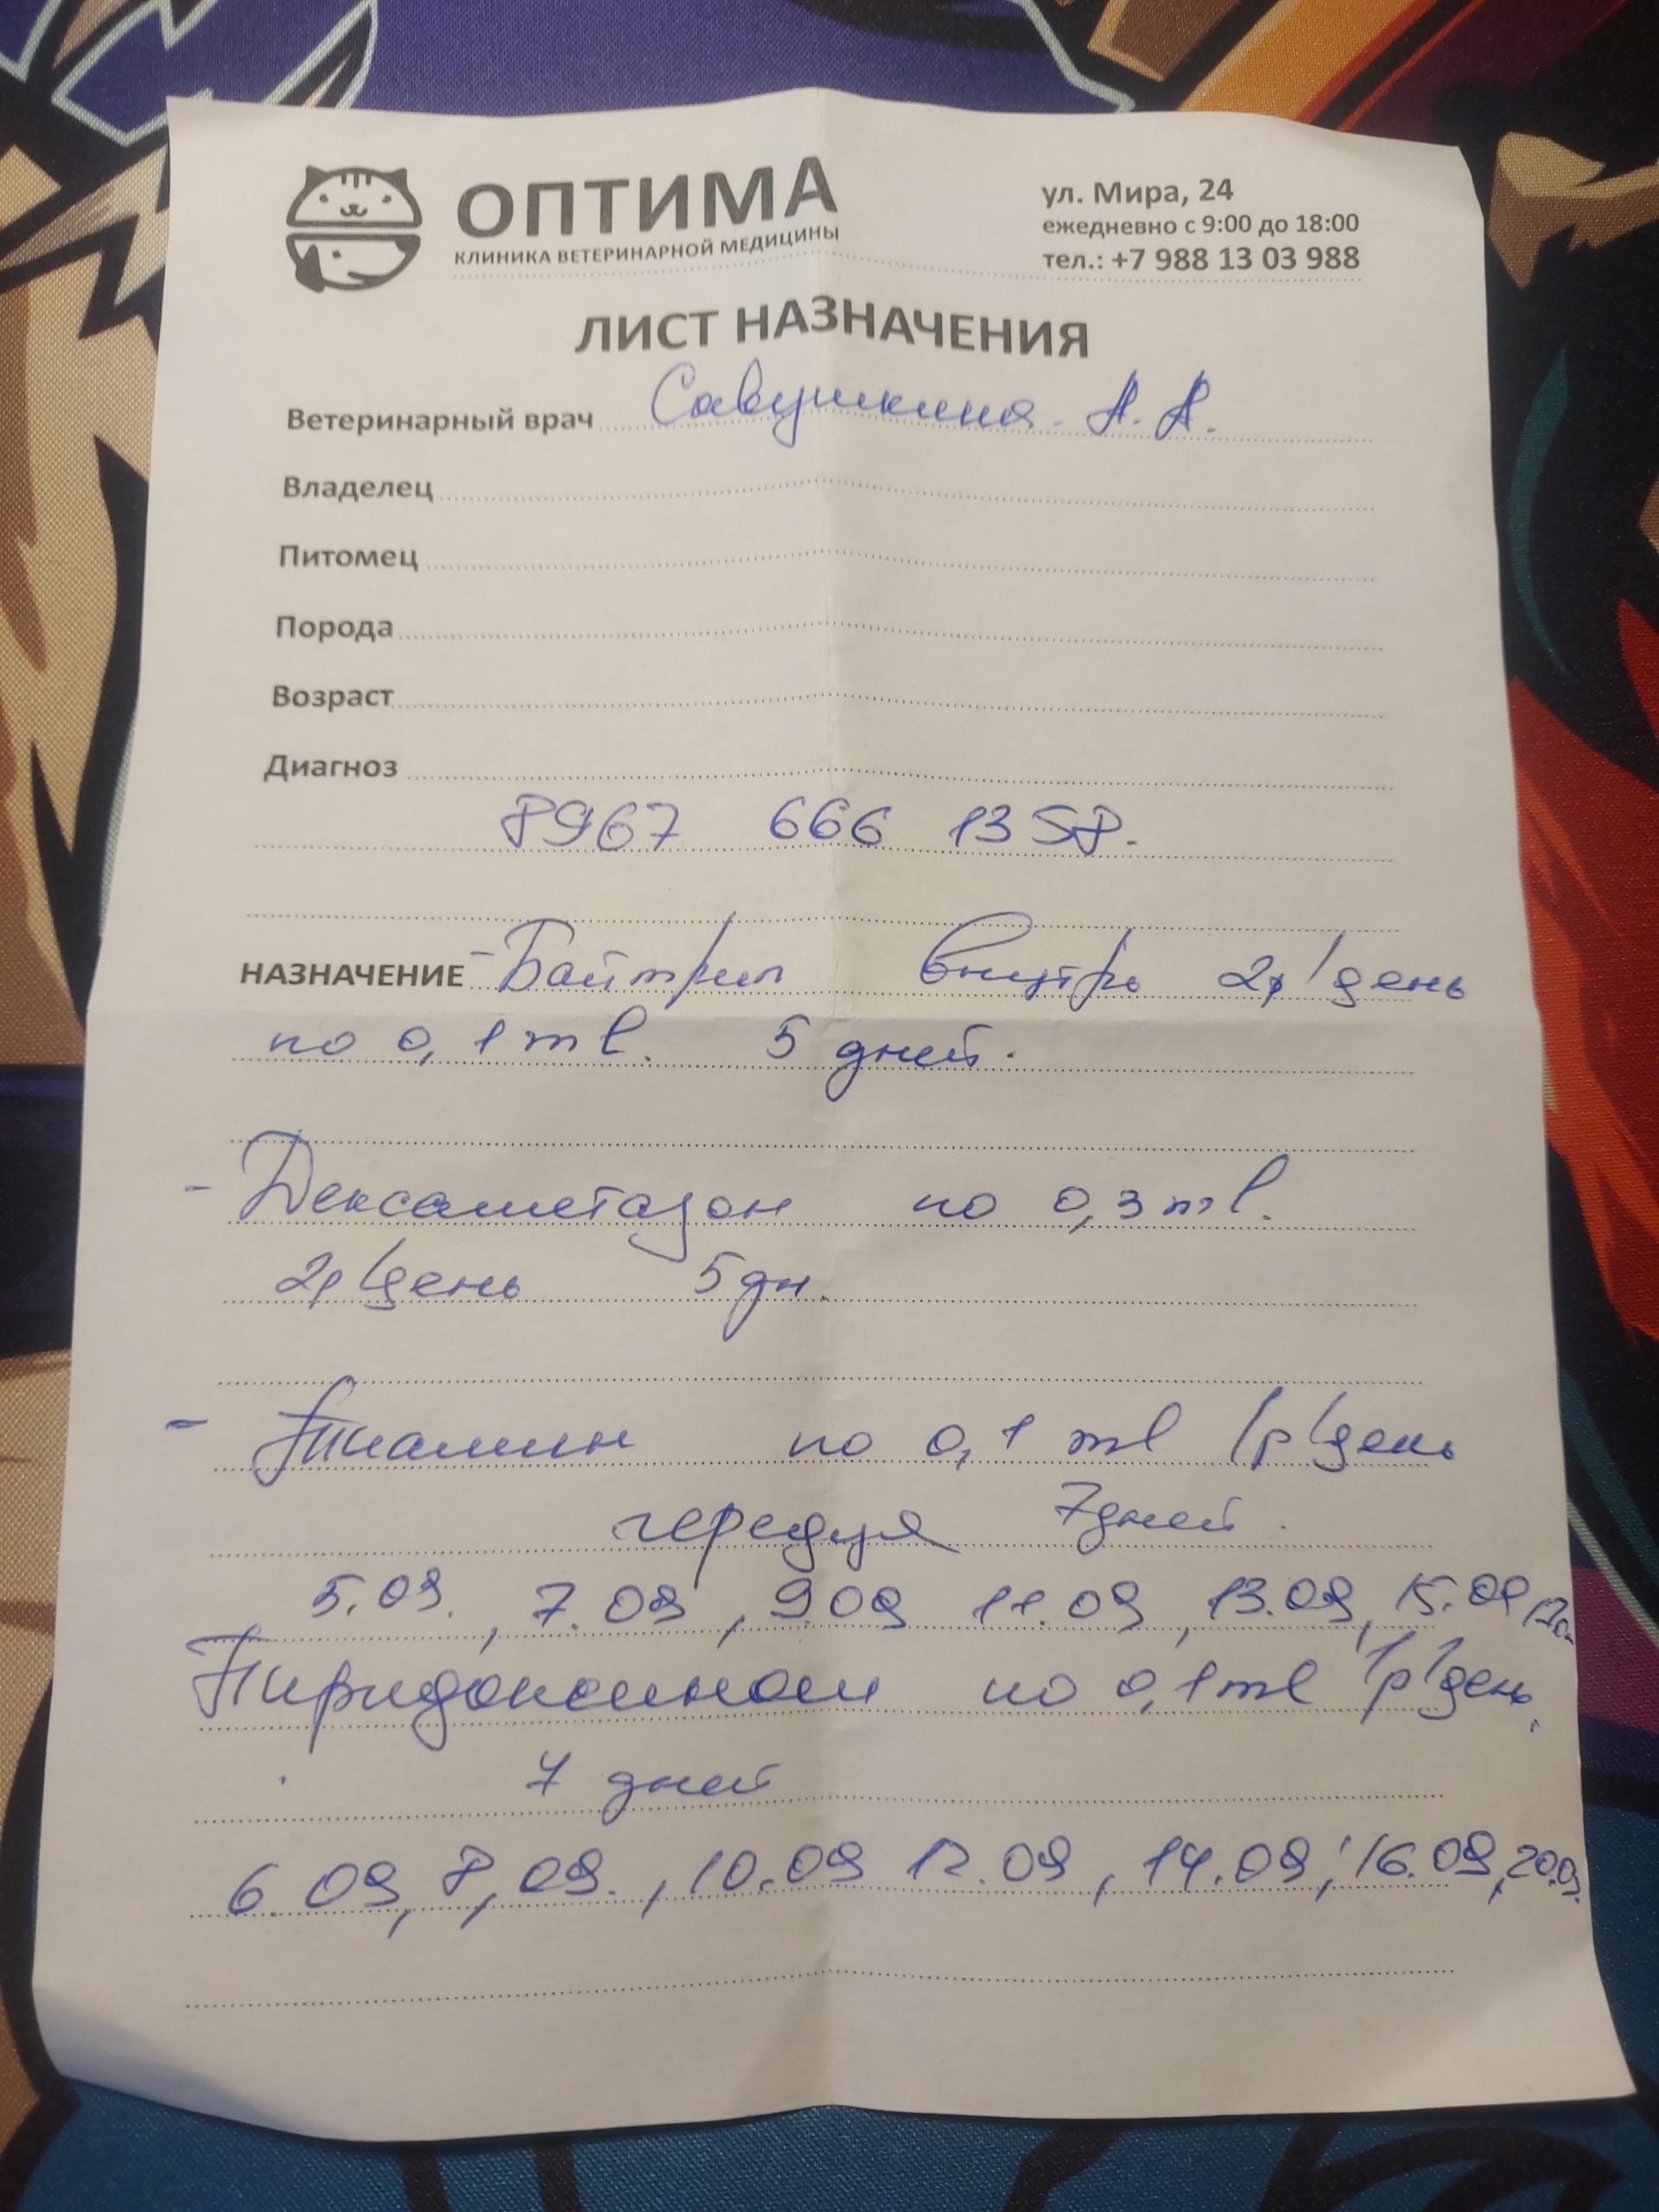 ОПТИМА
КЛИНИКА ВЕТЕРИНАРНОЙ МЕДИЦИНЫ
ул. Мира, 24
ежедневно с 9:00 до 18:00
тел.: +7 988 13 03 988
ЛИСТ НАЗНАЧЕНИЯ
Ветеринарный врач Савушкина А. А.
Владелец
Питомец
Порода
Возраст
Диагноз
8967 666 13 58.
НАЗНАЧЕНИЕ - Байтрил внутрь 2р/день
по 0,1 ml. 5 дней.
- Дексаметазон по 0,3 ml.
2р/день 5 дн.
- Тиамин по 0,1 ml 1р/день
чередуя 7 дней.
5.09., 7.09, 9.09 11.09, 13.09, 15.09
Пиридоксином по 0,1 ml 1р/день,
7 дней
6.09, 8,09., 10.09 12.09, 14.09, 16.09, 20.09.